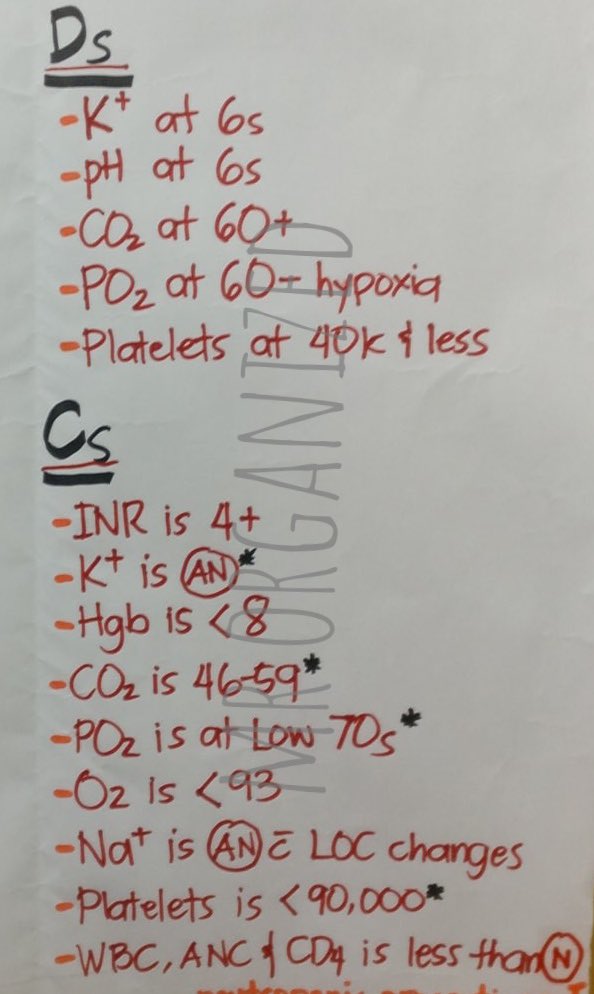 Ds
-K+ at 6s
-pH at 6s
-CO2 at 60+
-PO2 at 60- hypoxia
-Platelets at 40k & less
Cs
-INR is 4+
-K+ is AN*
-Hgb is <8
-CO2 is 46-59*
-PO2 is at Low 70s*
-O2 is <93
-Na+ is AN c̄ LOC changes
-Platelets is <90,000*
-WBC, ANC & CD4 is less than N
MR ORGANIZED